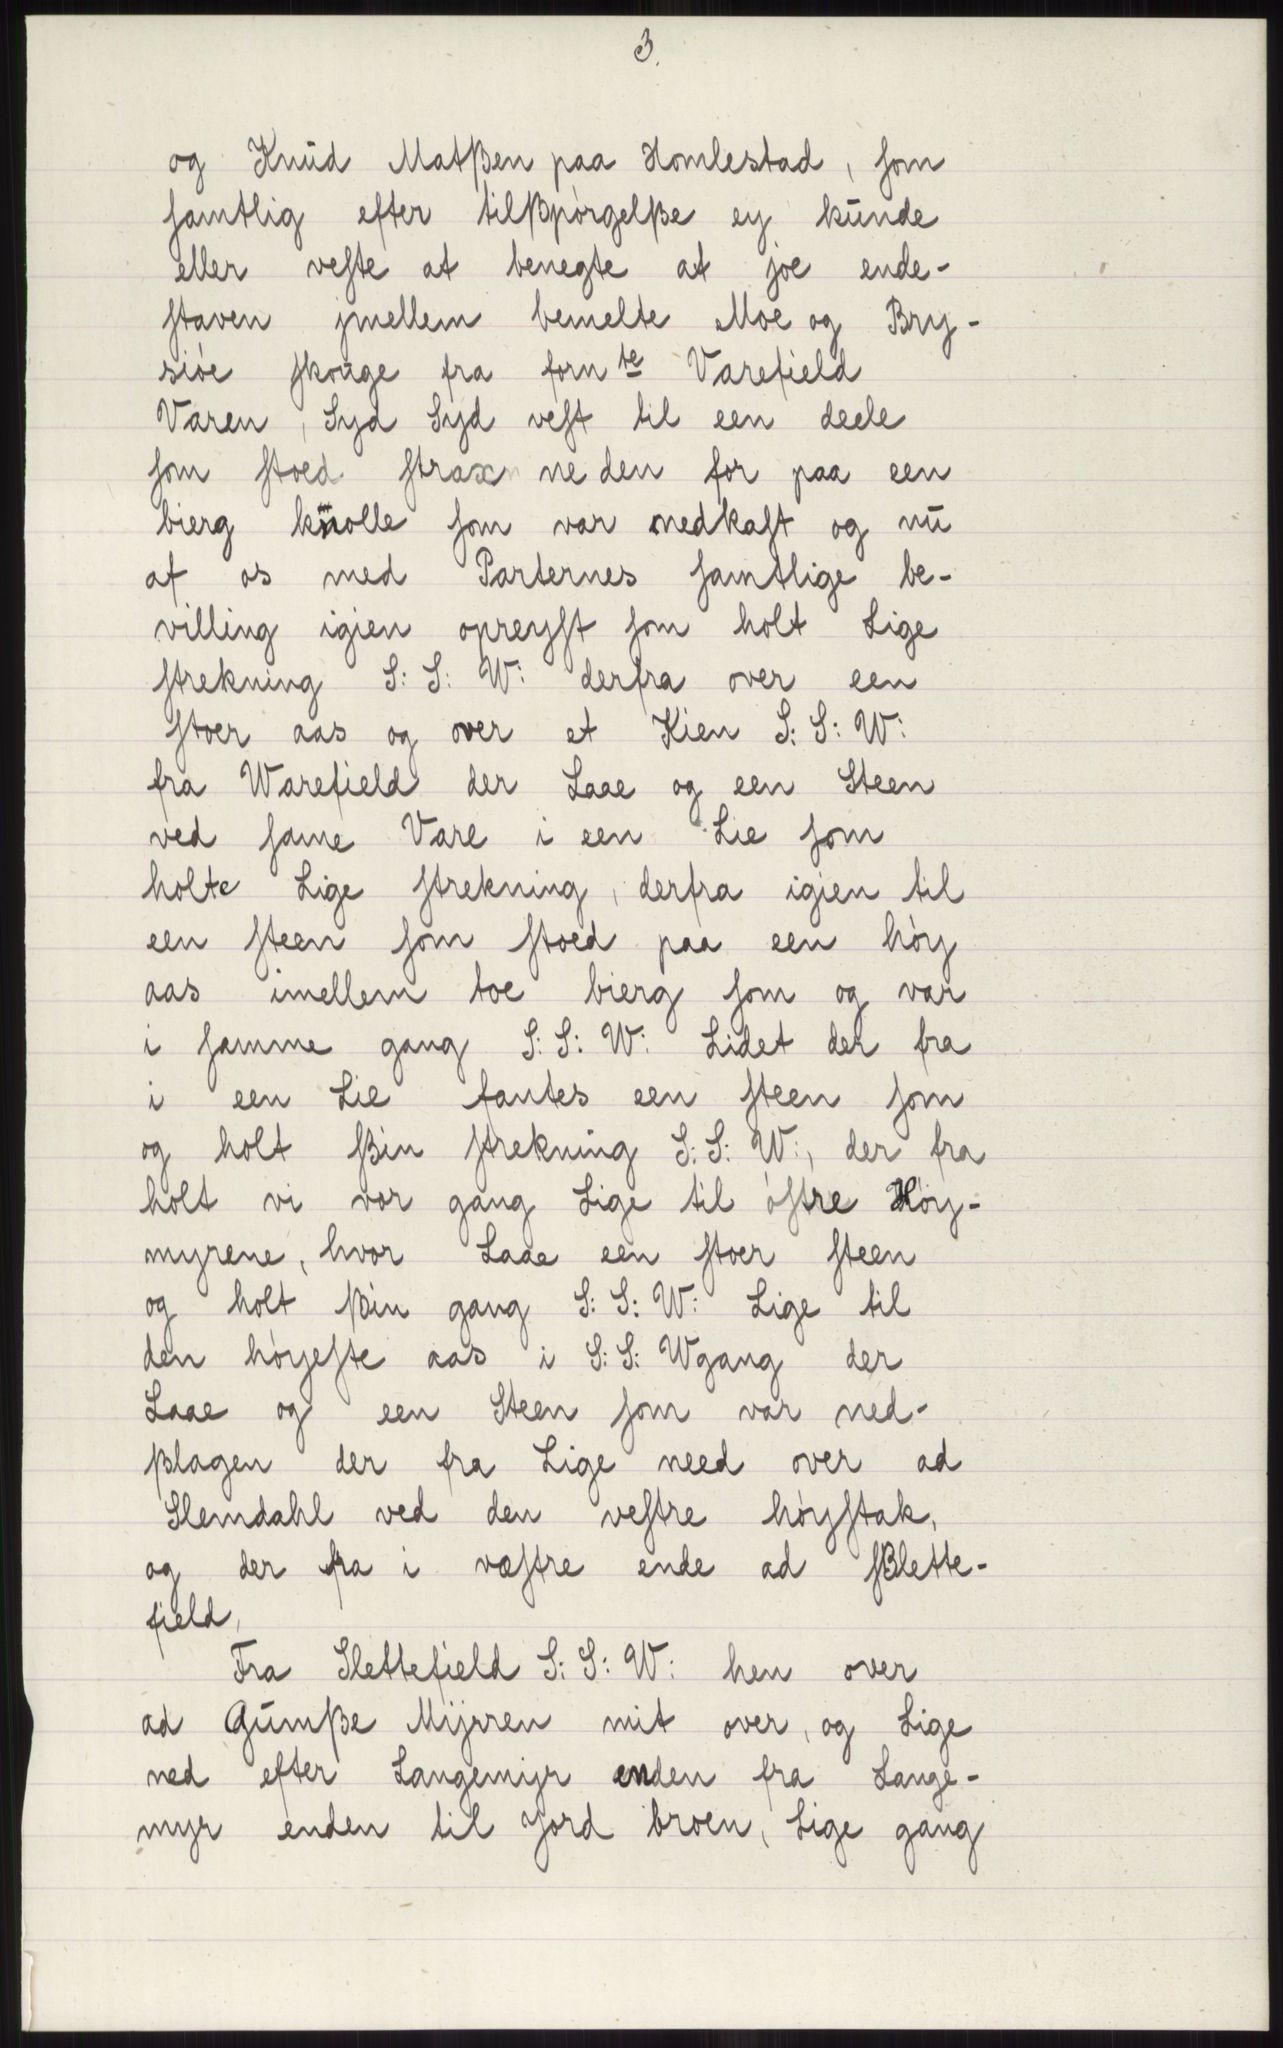 3.
og Knūd Matßen paa Homlestad, som
samtlig efter tilßpòrgelße ey kūnde
eller veste at benegte at joe ende-
staven jmellem bemelte Moe og Bry-
siòe skoūge fra forn te Varefield
Varen, Syd Syd vest til een deele
som stoed strax neden for paa een
bierg knolle som var nedkast og nū
af os med Parternes samtlige be-
villing igien opreyst som holt Lige
strekning S: S: W: derfra over een
stoer aas og over et Kien S: S: W:
fra Warefield der Laae og een Steen
ved same Vare i een Lie som
holte Lige strekning, derfra igien til
een steen som stoed paa een hòy
aas imellem toe bierg som og var
i samme gang S: S: W: Lidet der fra
i een Lie fantes een steen som
og holt ßin strekning S: S: W:, der fra
holt vi vor gang Lige til òstre Hòy-
myrene, hvor Laae een stoer steen
og holt ßin gang S: S: W: Lige til
den hòyeste aas i S: S: Wgang der
Laae og een Steen som var ned-
ßlagen der fra Lige need over ad
Slemdahl ved den vestre hòystak,
og der fra i væstre ende ad Slette-
field,
Fra Slettefield S: S: W: hen over
ad Gūmße Mijrren mit over, og Lige
ned efter Langemijr enden fra Lange-
myr enden til Jord broen, Lige gang